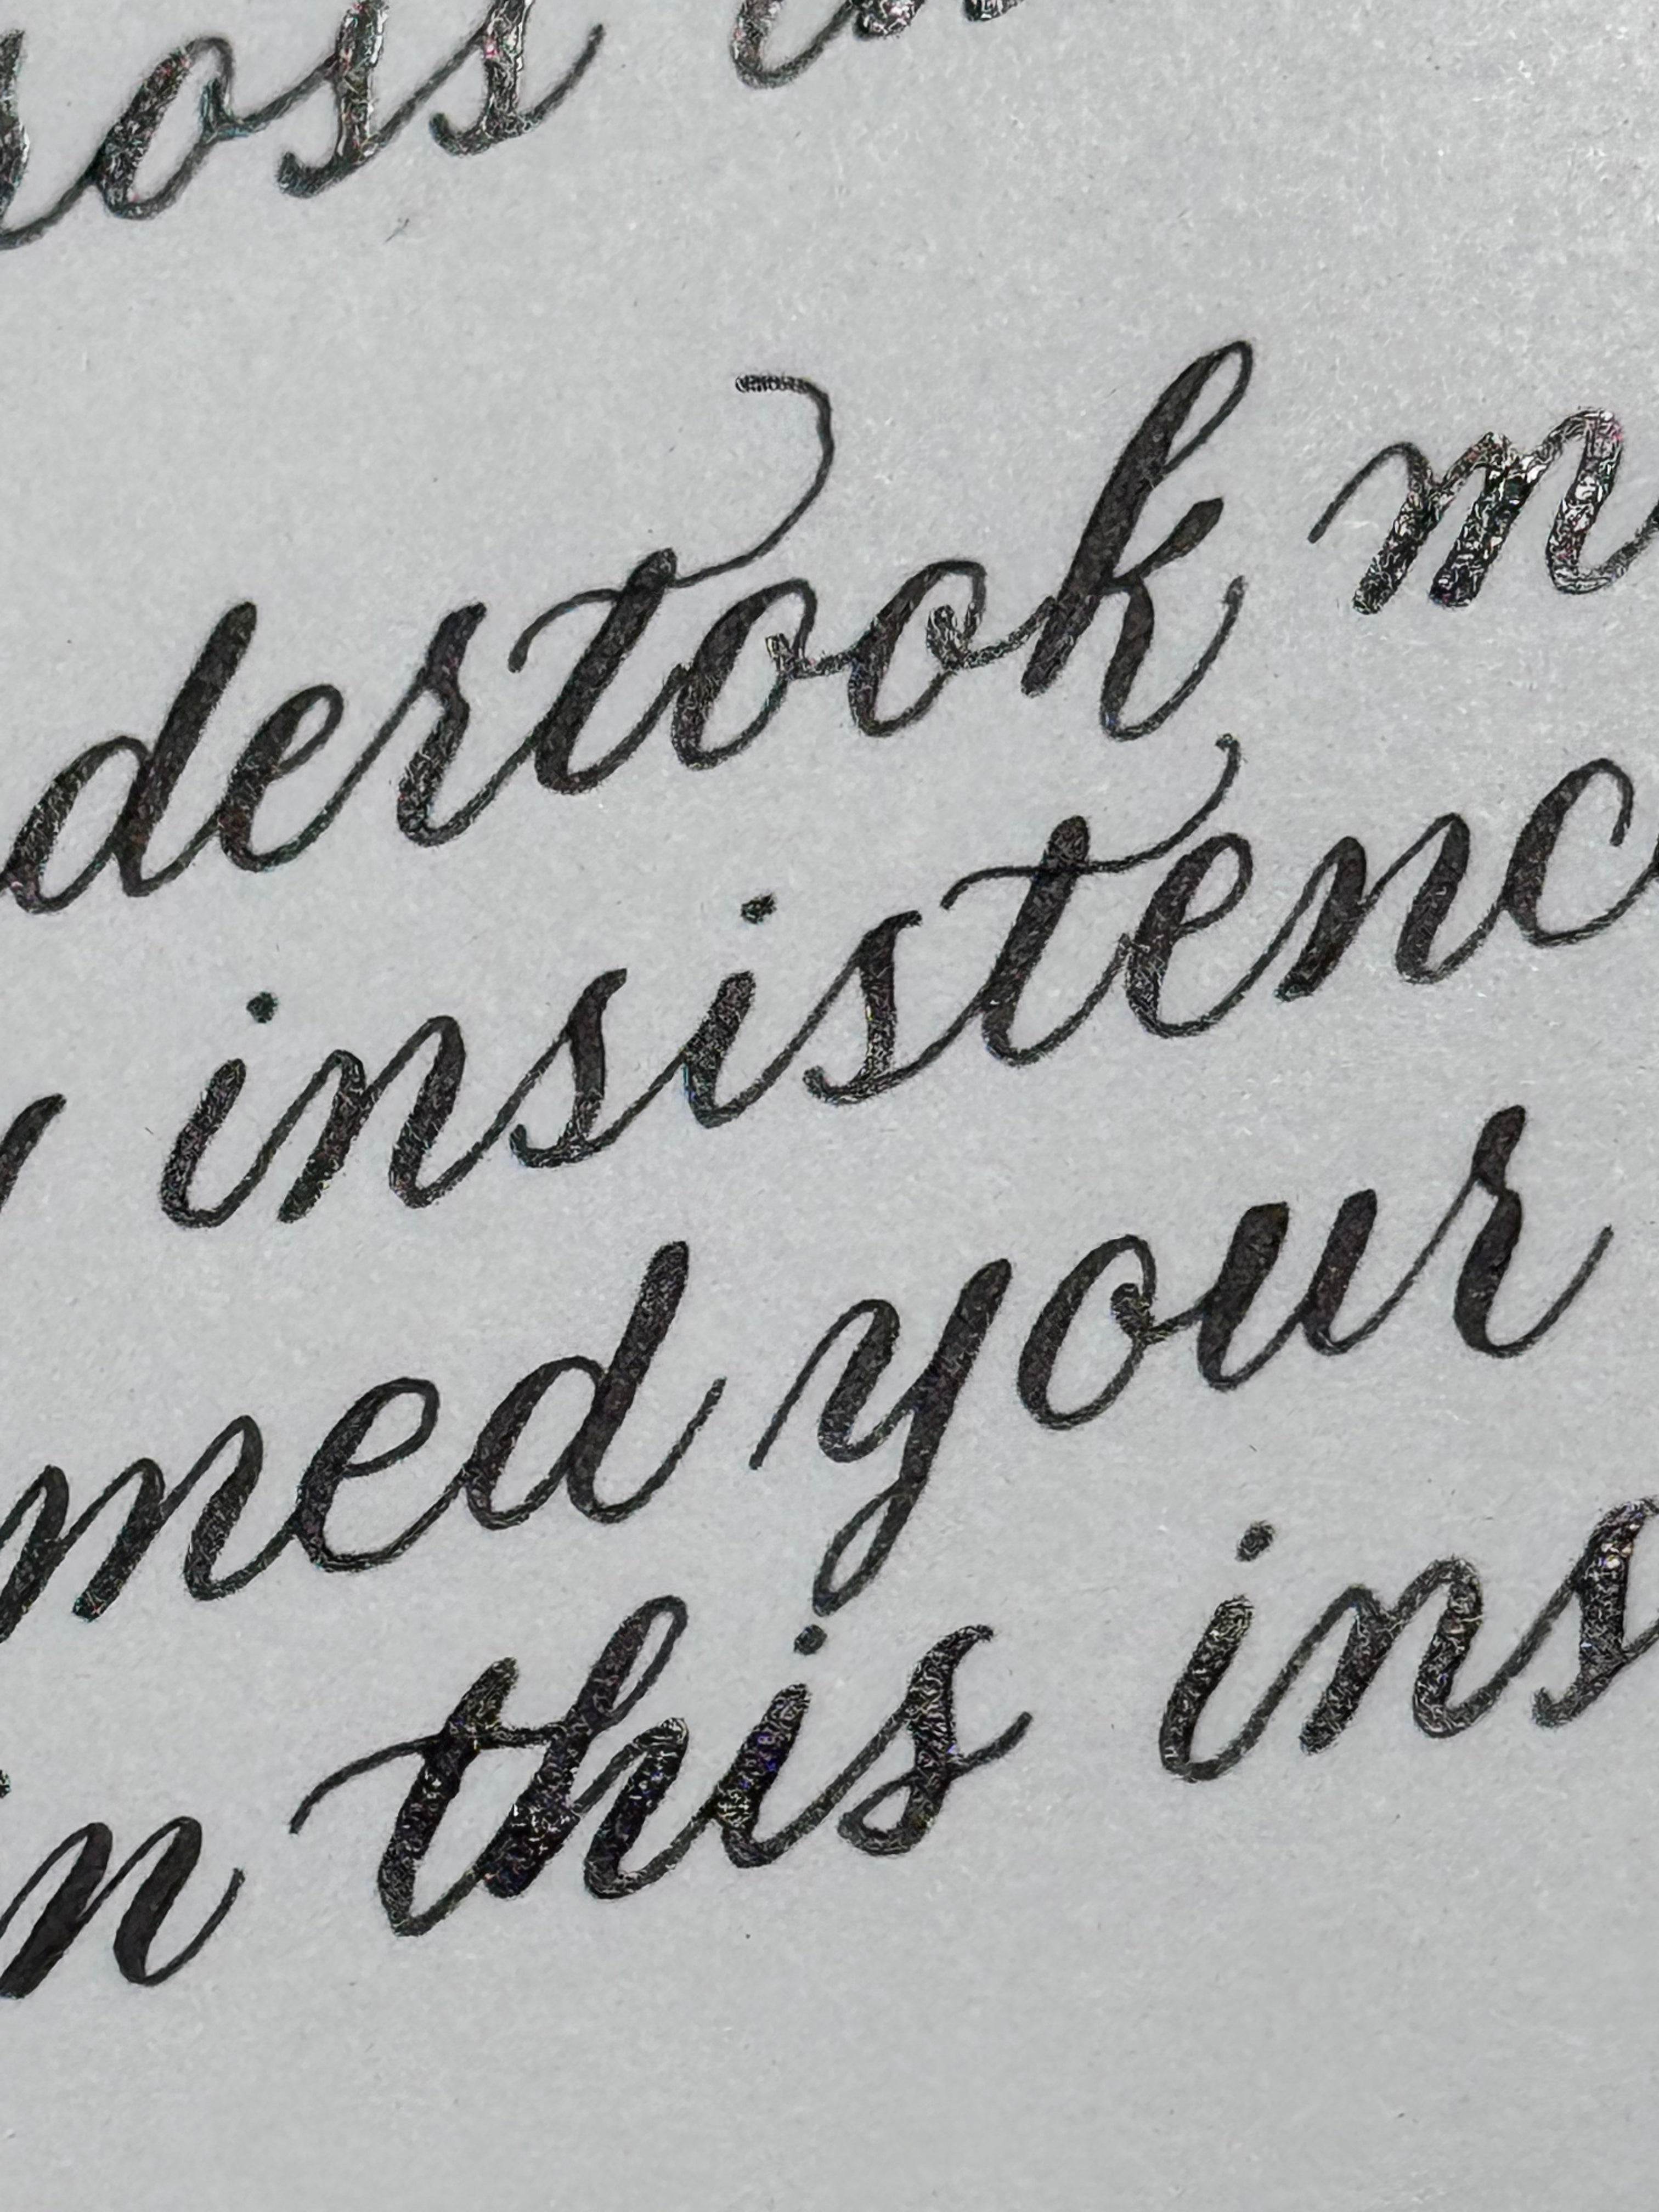 oss
dertook m
y insistenc
med your
in this ins